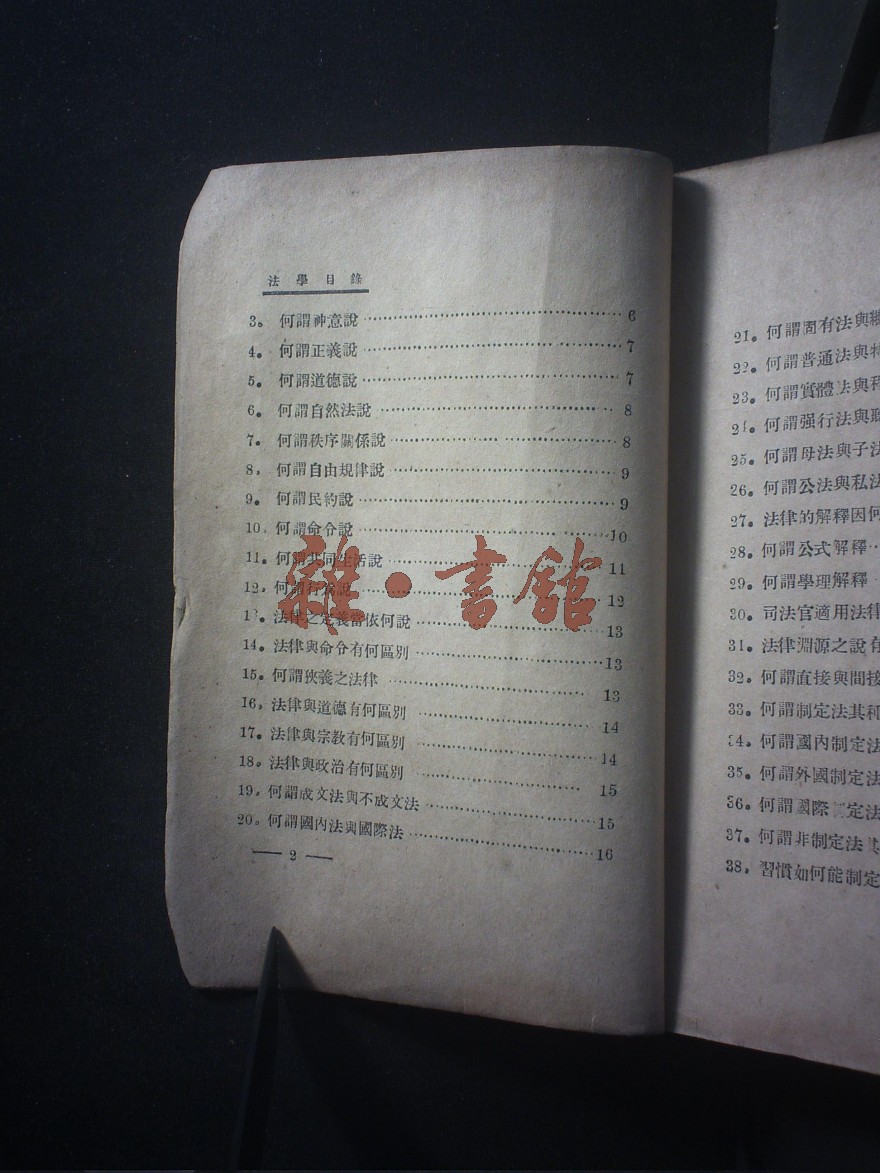 法學目錄
3。 何謂神意說 6
4。 何謂正義說 7
5。 何謂道德說 7
6。 何謂自然法說 8
7。 何謂秩序關係說 8
8。 何謂自由規律說 9
9。 何謂民約說 9
10。 何謂命令說 10
11。 何謂共同生活說 11
12。 何謂行為說 12
13。 法律之定義當依何說 13
14。 法律與命令有何區別 13
15。 何謂狹義之法律 13
16。 法律與道德有何區別 14
17。 法律與宗教有何區別 14
18。 法律與政治有何區別 15
19。 何謂成文法與不成文法 15
20。 何謂國內法與國際法 16
— 2 —
雜·書館
21。 何謂固有法與繼
22。 何謂普通法與特
23。 何謂實體法與程
24。 何謂强行法與聽
25。 何謂母法與子法
26。 何謂公法與私法
27。 法律的解釋因何
28。 何謂公式解釋
29。 何謂學理解釋
30。 司法官適用法律
31。 法律淵源之說有
32。 何謂直接與間接
33。 何謂制定法其種
34。 何謂國內制定法
35。 何謂外國制定法
36。 何謂國際制定法
37。 何謂非制定法其
38。 習慣如何能制定